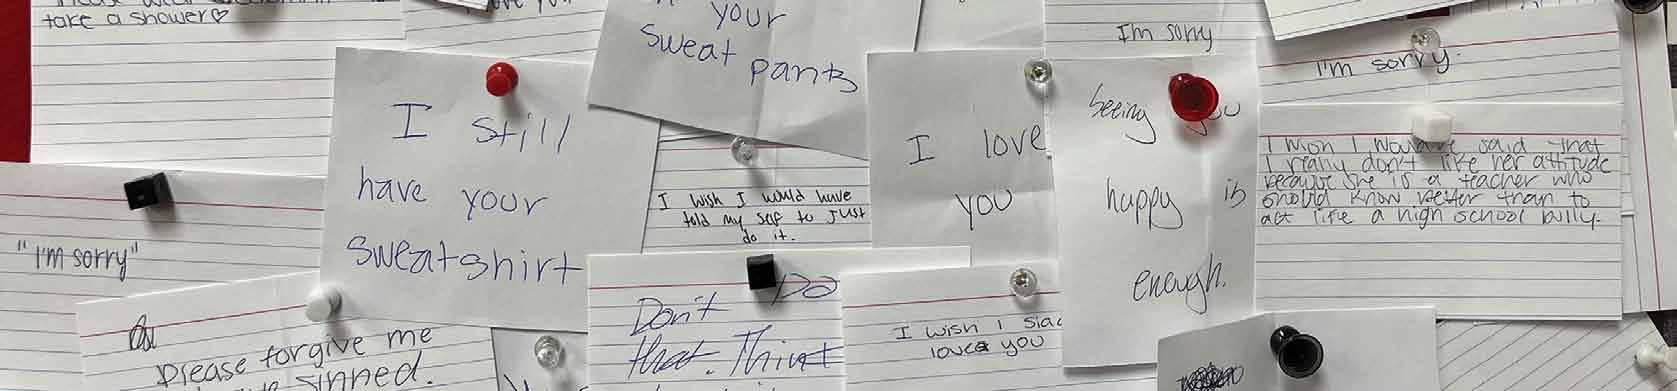 take a shower♡
I still
have your
sweatshirt
your
sweat pants
I'm sorry
I'm sorry.
I love
you
seeing you
happy is
enough.
I wish I would have
told my self to just
do it.
I wish I would've said that
I really don't like her attitude
because she is a teacher who
should know better than to
act like a high school bully.
"I'm sorry"
Please forgive me
sinned.
Don't Do
that. Think
I wish I
loved you